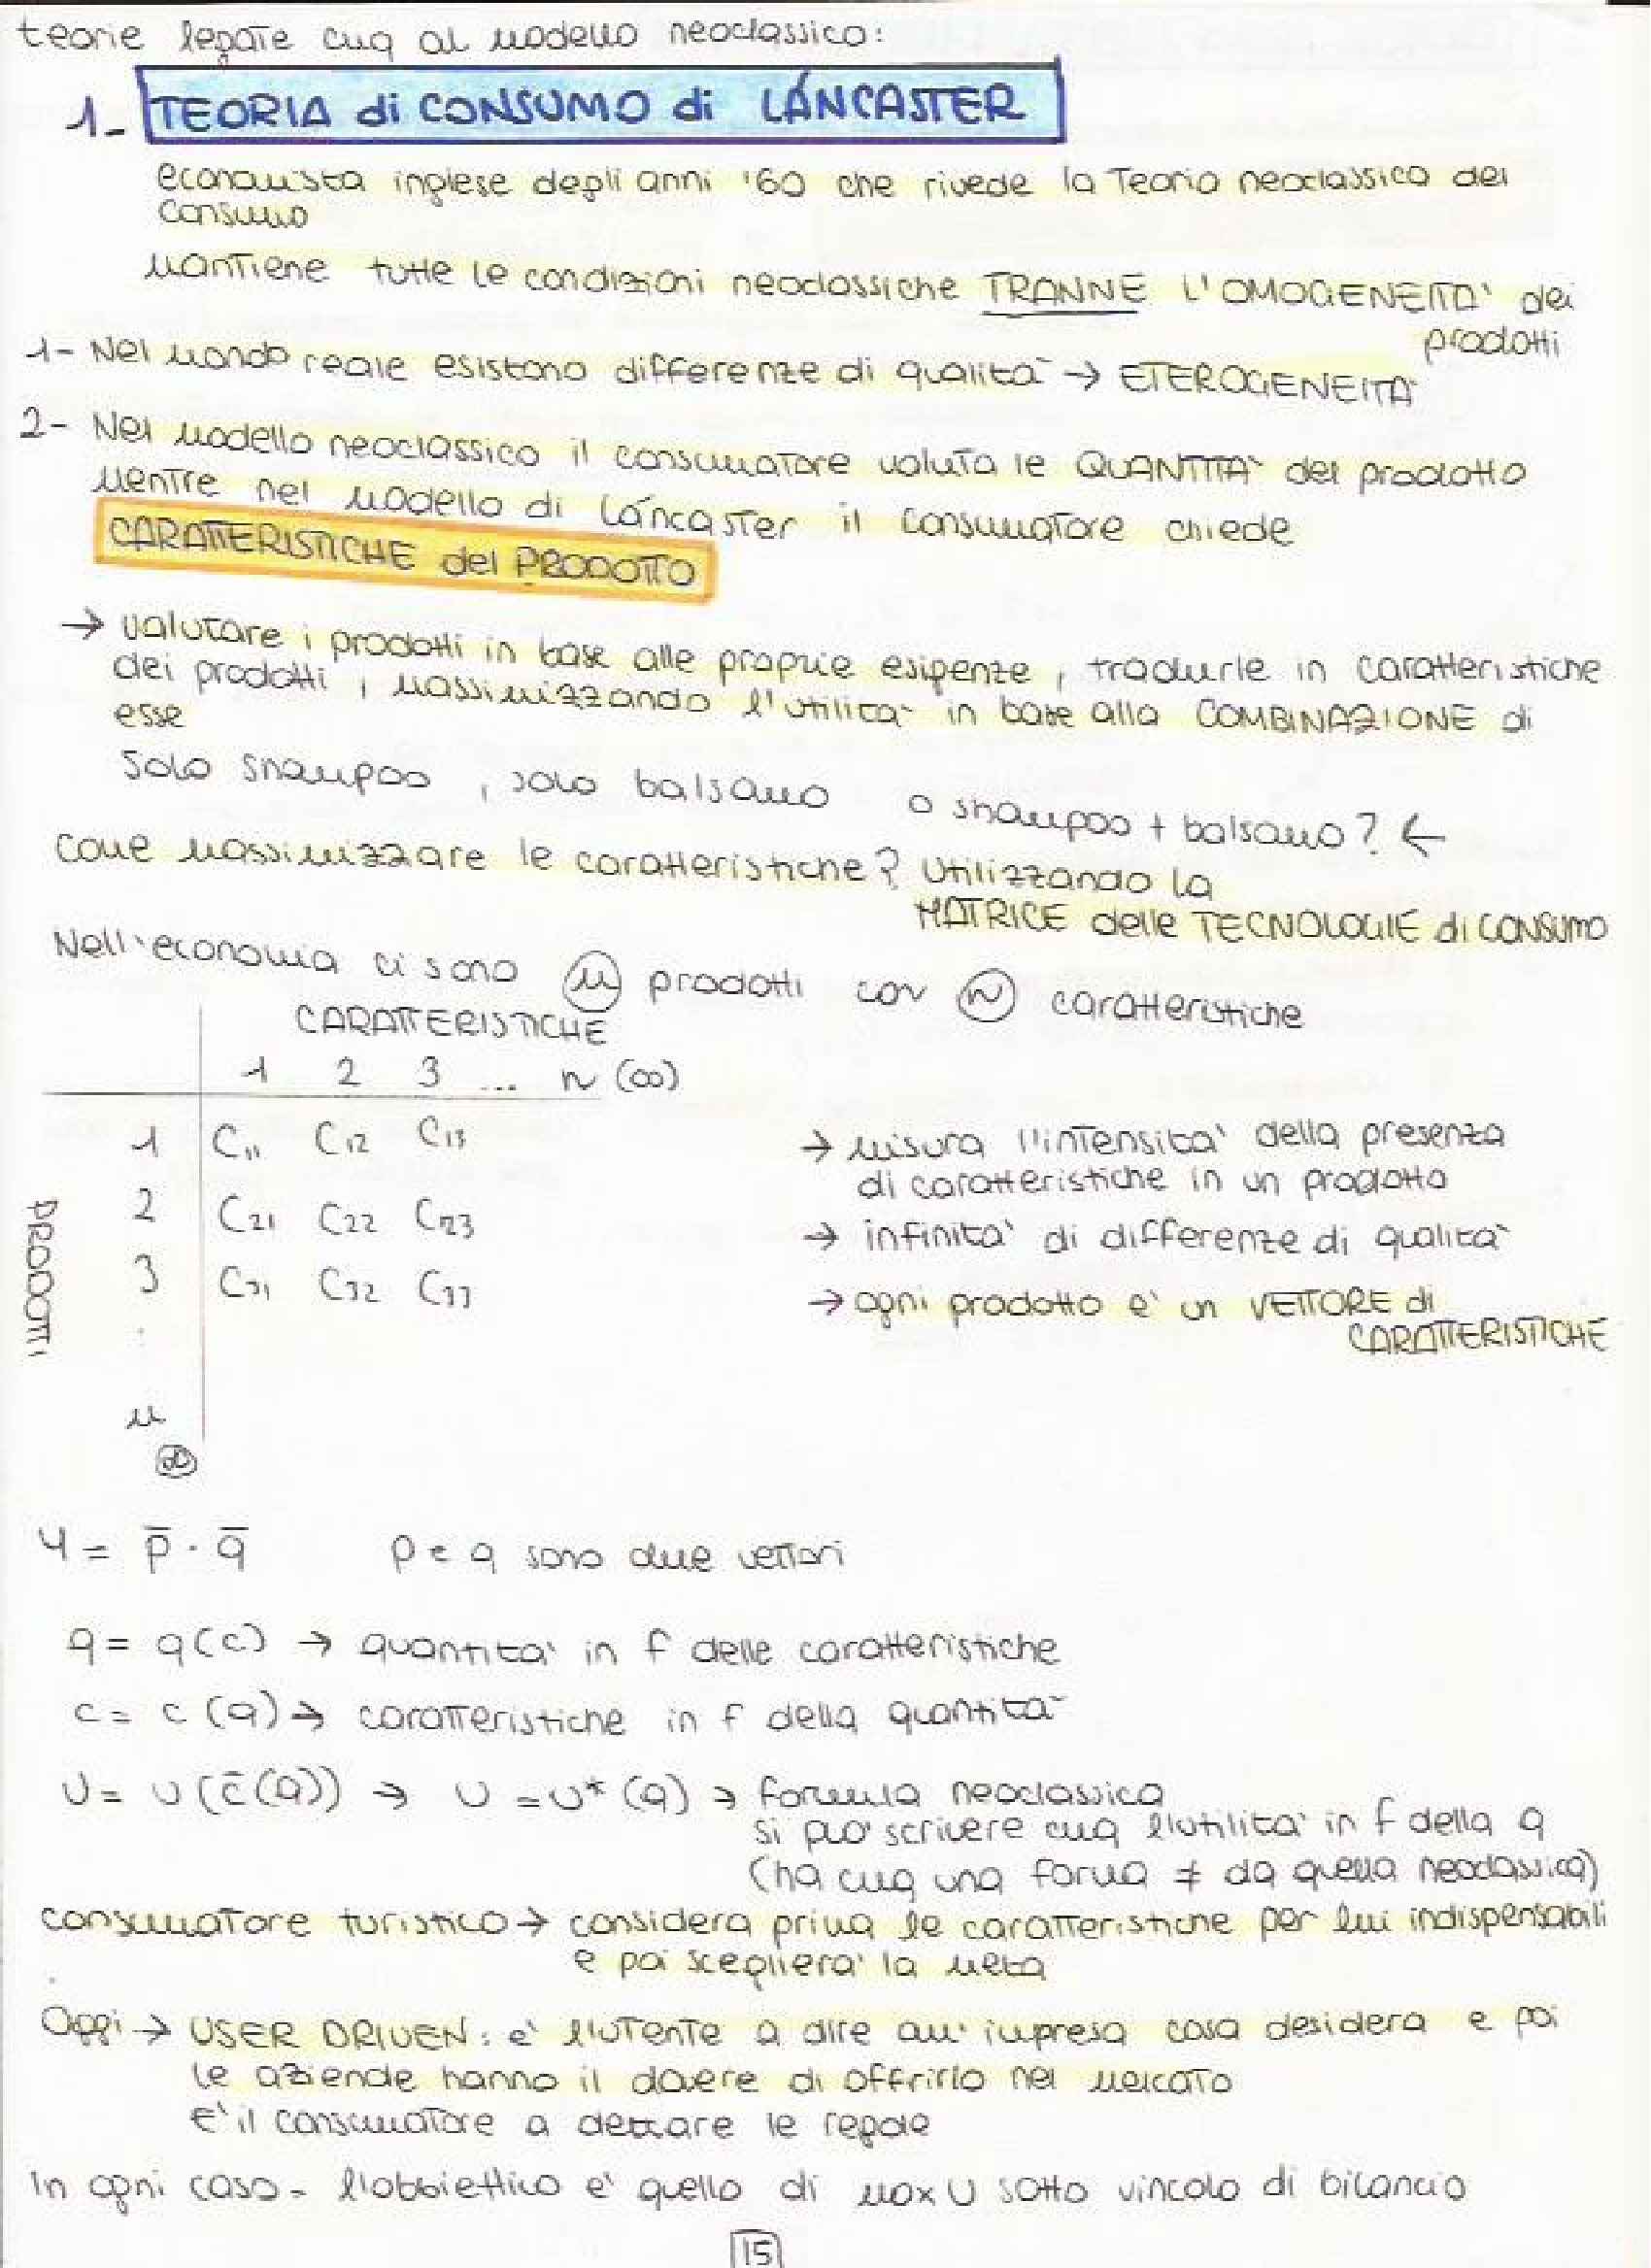 teorie legate cmq al modello neoclassico:
1- TEORIA di CONSUMO di LÁNCASTER
economista inglese degli anni '60 che rivede la Teoria neoclassica del
consumo
Mantiene tutte le condizioni neoclassiche TRANNE L'OMOGENEITA' dei
prodotti
1- Nel mondo reale esistono differenze di qualità → ETEROGENEITA'
2- Nel modello neoclassico il consumatore valuta le QUANTITA' del prodotto
Mentre nel modello di Láncaster il consumatore chiede
CARATTERISTICHE del PRODOTTO
→ valutare i prodotti in base alle proprie esigenze, tradurle in caratteristiche
dei prodotti, massimizzando l'utilita' in base alla COMBINAZIONE di
esse
Solo shampoo, solo balsamo o shampoo + balsamo? ←
Come massimizzare le caratteristiche? Utilizzando la
MATRICE delle TECNOLOGIE di CONSUMO
Nell'economia ci sono m prodotti con n caratteristiche
CARATTERISTICHE
1 2 3 ... n (∞)
1 C11 C12 C13
2 C21 C22 C23
3 C31 C32 C33
.
m
∞
PRODOTTI
→ misura l'intensita' della presenza
di caratteristiche in un prodotto
→ infinita' di differenze di qualita'
→ ogni prodotto e' un VETTORE di
CARATTERISTICHE
Y = p̄ · q̄ p e q sono due vettori
q = q(c) → quantita' in f delle caratteristiche
c = c(q) → caratteristiche in f della quantita'
U = U(c̄(q)) → U = U*(q) → formula neoclassica
si puo' scrivere cmq l'utilita' in f della q
(ha cmq una forma ≠ da quella neoclassica)
consumatore turistico → considera prima le caratteristiche per lui indispensabili
e poi scegliera' la meta
Oggi → USER DRIVEN: e' l'utente a dire all'impresa cosa desidera e poi
le aziende hanno il dovere di offrirlo nel mercato
E' il consumatore a dettare le regole
In ogni caso - l'obbiettivo e' quello di max U sotto vincolo di bilancio
15